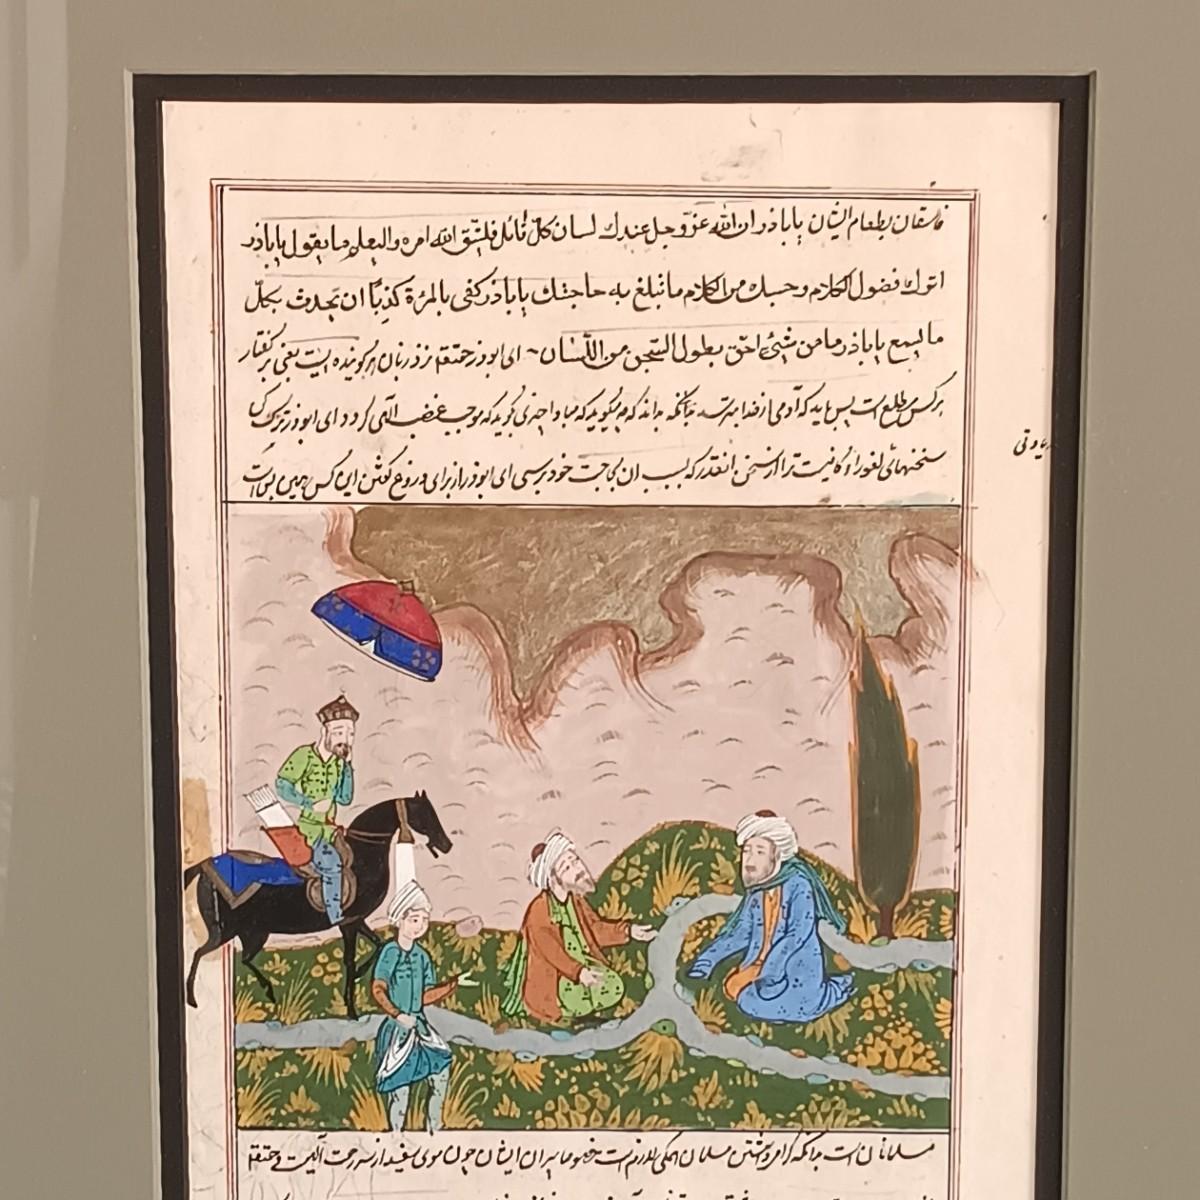 فاسقان بطعام ایشان یاباذر ان الله عز و جل عندك لسان كل قائل فلیتق الله امره والیعلم ما یقول یاباذر
اترك فضول الكلام و حسبك من الكلام ما تبلغ به حاجتك یاباذر كفی بالمرة كذباً ان یحدث بكل
ما یسمع یاباذر ما من شیئ احق بطول السجن من اللسان ای ابوذر حقتعالی نزد زبان هر گوینده ایست یعنی بر گفتار
هر کس مطلع است پس باید که آدمی از خدا بترسد بدانکه چه میگوید که مبادا چیزی گوید که موجب غضب الهی گردد ای ابوذر ترک کن
سخنهای لغو را و کافیست ترا از سخن انقدر که بسبب ان بحاجت خود برسی ای ابوذر از برای دروغ گفتن این کس همین بس است
زیادتی
مسلمانان است بدانکه گرامی داشتن مسلمان لازم است خصوصا پیران ایشان چون موی سفید از رحمت الهیست